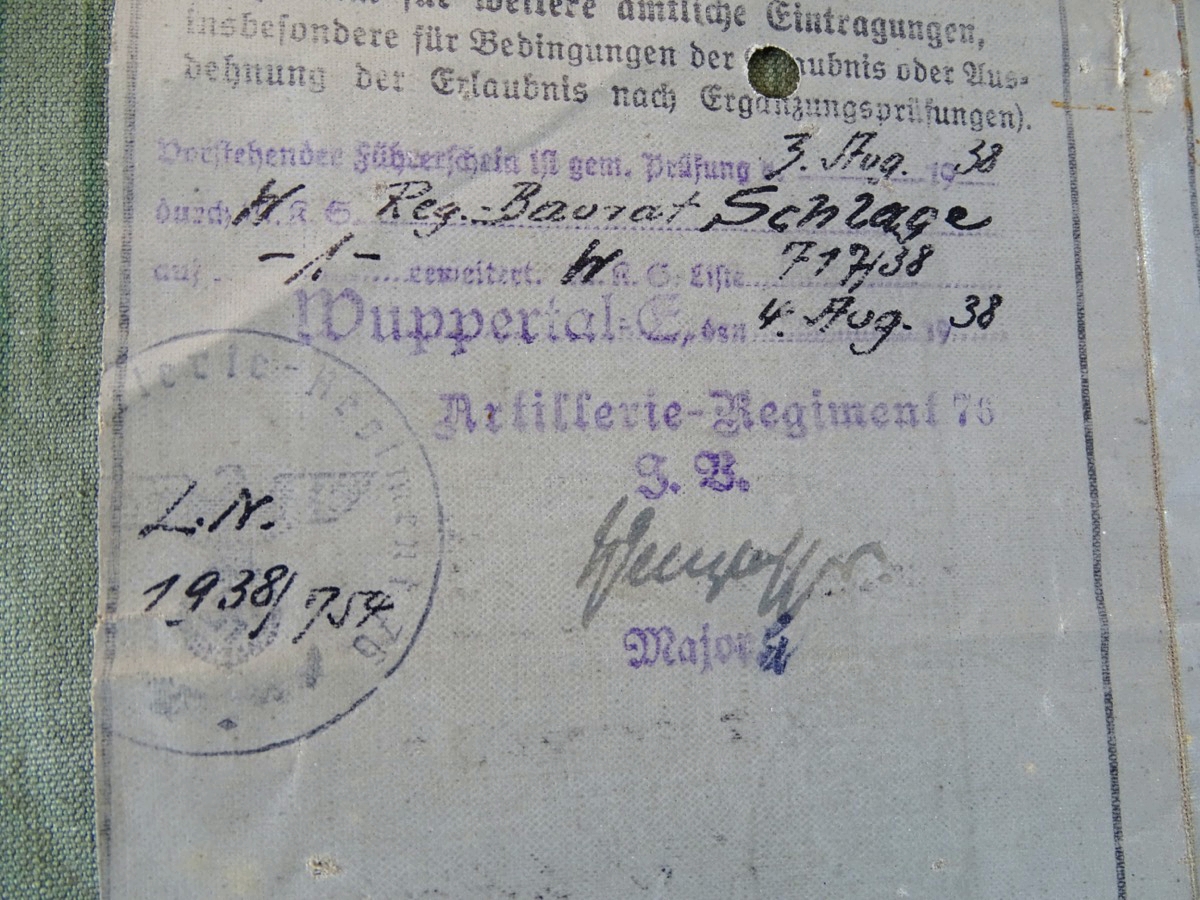 für weitere amtliche Eintragungen,
insbesondere für Bedingungen der aubnis oder Aus-
dehnung der Erlaubnis nach Ergänzungsprüfungen).
Vorstehender Führerschein ist gem. Prüfung 3. Aug. 19 38
durch W.K.S. Reg.-Baurat Schlage
auf -/.- erweitert. W.K.S. Liste 717/38
Wuppertal-E, den 4. Aug. 19 38
Artillerie-Regiment 76
I. V.
Major
llerie-Regiment 76
L.N.
1938/754